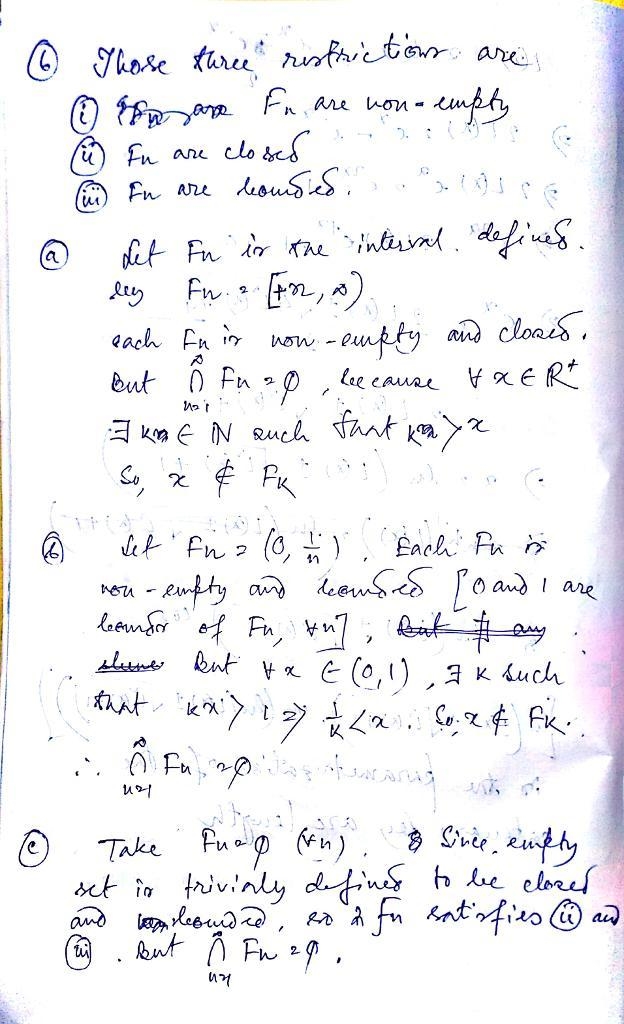 ⑥ Those three restrictions are
ⓘ Fn are non-empty
ⓘⓘ Fn are closed
ⓘⓘⓘ Fn are bounded.
ⓐ Let Fn is the interval defined.
by Fn = [+n, ∞)
each Fn is non-empty and closed.
But ∞∩n=1 Fn = φ, because ∀ x ∈ R⁺
∃ k ∈ N such that k > x
So, x ∉ FK
ⓑ Let Fn = (0, 1/n). Each Fn is
non-empty and bounded [0 and 1 are
bounds of Fn, ∀n], But ∄ any
But ∀x ∈ (0,1), ∃ K such
that Kx > 1 ⇒ 1/K < x. So, x ∉ FK.
∴ ∞∩n=1 Fn = φ
ⓒ Take Fn = φ (∀n). Since, empty
set is trivialy defined to be closed
and bounded, so fn satisfies ⓘⓘ and
ⓘⓘⓘ. But ∞∩n=1 Fn = φ.